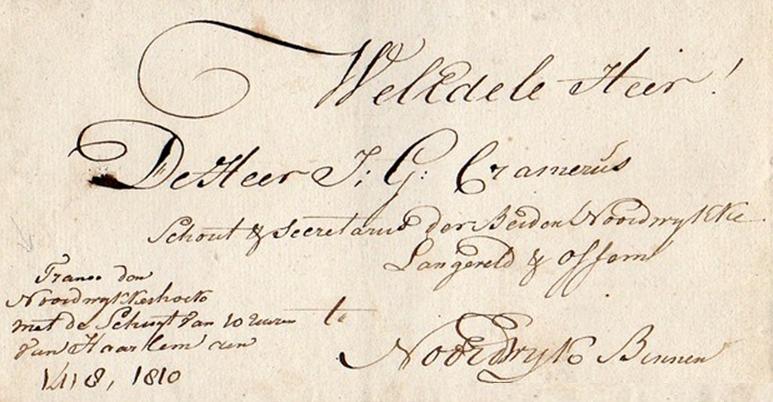 WelEdele Heer!
De Heer J: G: Cramerus
Schout & Secretarius der Beiden Noordwykke
Langeveld & Offem
te
Noordwyk Binnen
Franco
Noordwykkerhoek
met de Schuyt van 10 uuren
van Haarlem
1418, 1810